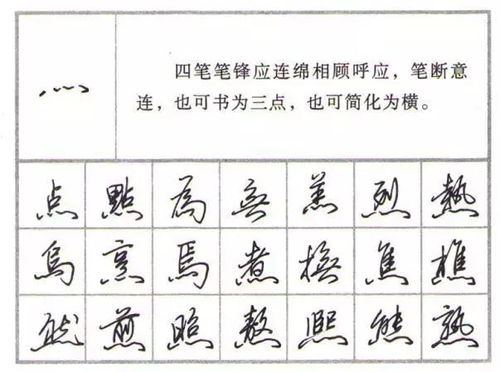 灬
四笔笔锋应连绵相顾呼应，笔断意
连，也可书为三点，也可简化为横。
点 點 為 無 羔 烈 熱
烏 烹 焉 煮 撫 焦 樵
然 煎 照 熬 熙 熊 熟